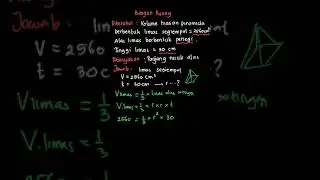 Bangun Ruang
Diketahui : Volume hiasan piramida
berbentuk limas segiempat = 2560cm³
Alas limas berbentuk persegi
Tinggi limas = 30 cm
Ditanyakan : Panjang rusuk alas
Jawab : limas segiempat
V = 2560 cm³
t = 30cm r ... ?
V limas = 1/3 × luas alas × tinggi
V. limas = 1/3 × r × r × t
2560 = 1/3 × r² × 30
Jawab :
V = 2560
t = 30cm
V limas = 1/3
V. limas = 1/3
?
× tinggi